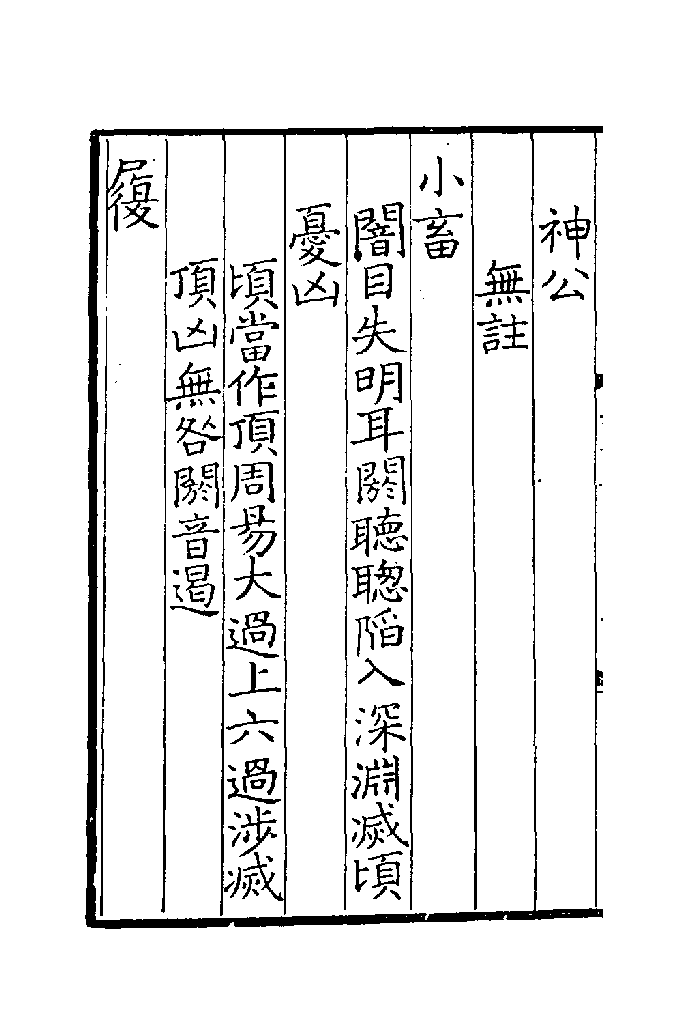 神公
無註
小畜
闇目失明耳閼聽聦陷入深淵滅頃
憂凶
頃當作頂周易大過上六過涉滅
頂凶無咎閼音遏
履